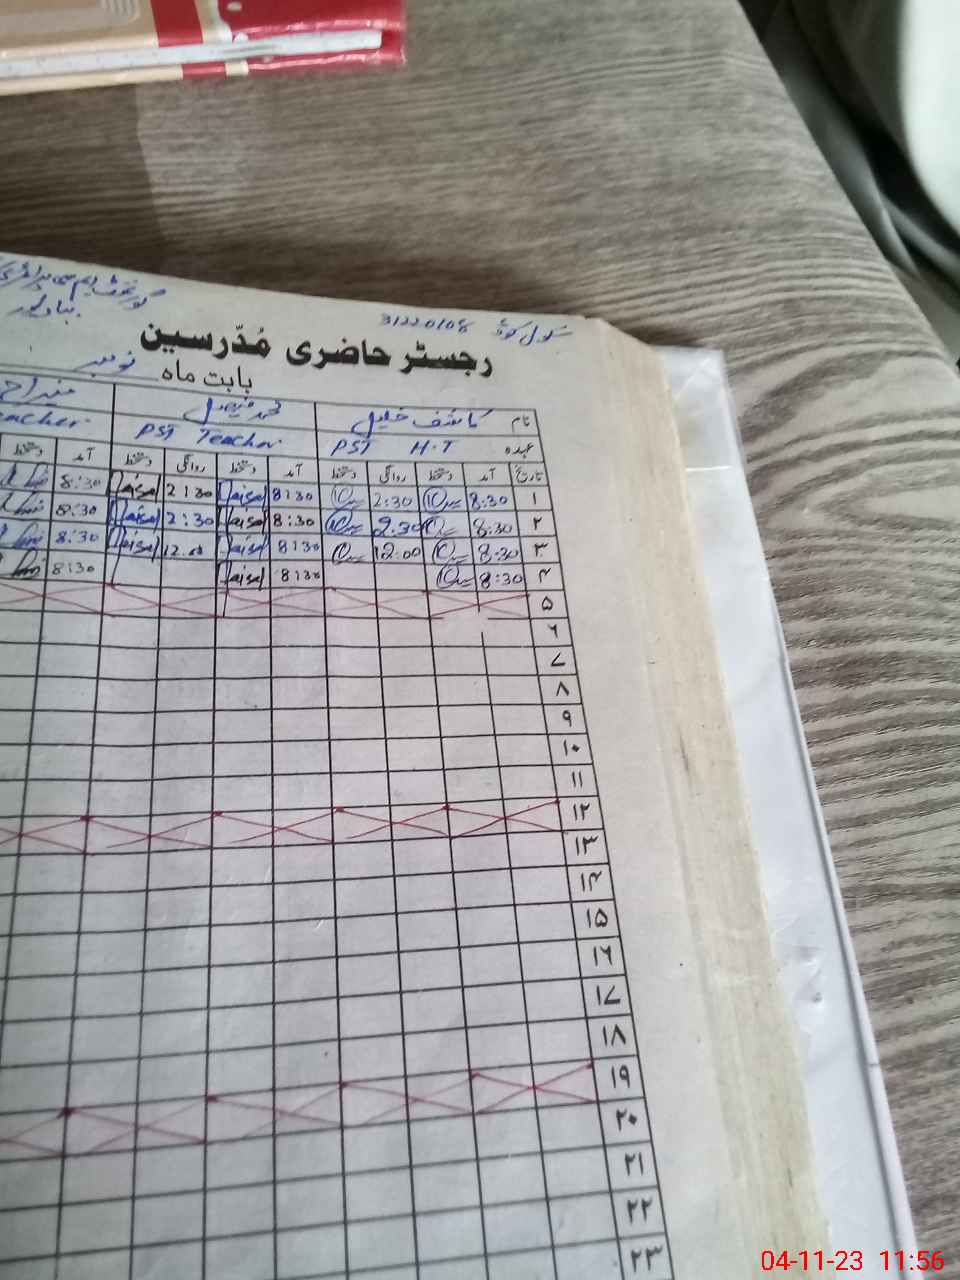 گورنمنٹ ایم سی پرائمری
سکول کوڈ 31220108
رجسٹر حاضری مُدّرسین
بابت ماہ نومبر
نام کاشف خلیل محمد فیصل
عہدہ PST H.T PST Teacher Teacher
تاریخ آمد دستخط روانگی دستخط آمد دستخط روانگی دستخط آمد دستخط
۱ 8:30 2:30 8:30 Faisal 2:30 Faisal 8:30
۲ 8:30 2:30 8:30 Faisal 2:30 Faisal 8:30
۳ 8:30 12:00 8:30 Faisal 12.00 Faisal 8:30
۴ 8:30 8:30 Faisal 8:30
۵
۶
۷
۸
۹
۱۰
۱۱
۱۲
۱۳
۱۴
۱۵
۱۶
۱۷
۱۸
۱۹
۲۰
۲۱
۲۲
۲۳
04-11-23 11:56